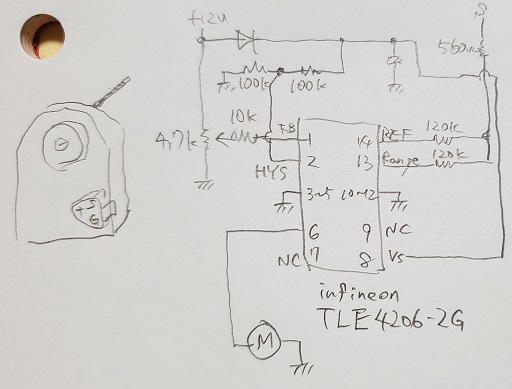 +12V
560Ω
100k 100k
10k
4.7k
FB
1
14
REF
120k
HYS
2
13
Range
120k
3~5
10~12
6
9
NC
NC
7
8
Vs
M
infineon
TLE4206-2G